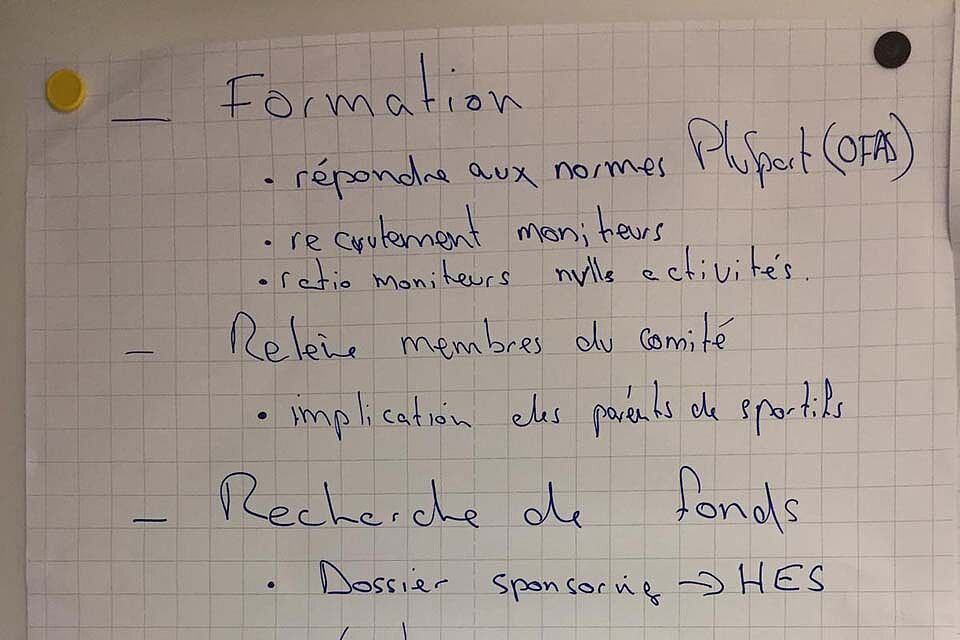 — Formation
• répondre aux normes PluSport (OFAS)
• recrutement moniteurs
• ratio moniteurs nvlls activités.
— Relève membres du comité
• implication des parents de sportifs
— Recherche de fonds
• Dossier sponsoring → HES